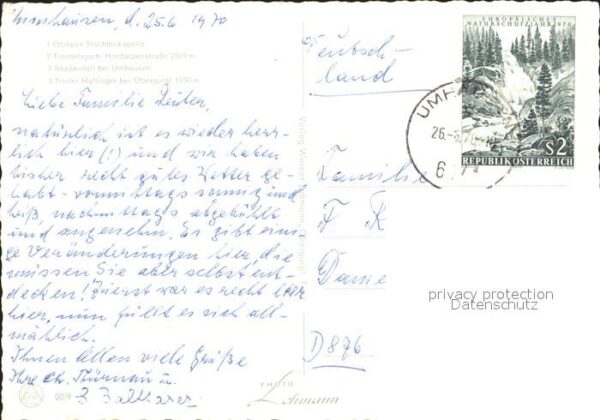 Umhausen, d. 25.6 1970
1 Ötztaler Trachtenkapelle
2 Timmelsjoch-Hochalpenstraße 2509 m
3 Stuibenfall bei Umhausen
4 Tiroler Haflinger bei Obergurgl 1930 m
Liebe Familie
natürlich ist es wieder herr-
lich hier (!) und wir haben
bisher recht gutes Wetter ge-
habt - vormittags sonnig und
heiß, nachmittags abgekühlt
und angenehm. Es gibt eini-
ge Veränderungen hier, die
müssen Sie aber selbst ent-
decken! Zuerst war es recht leer
hier, nun füllt es sich all-
mählich.
Ihnen Allen viele Grüße
Ihre Chr. Thürnau u.
00/9
Verlag
PHOTO
Lohmann
EUROPÄISCHES
NATURSCHUTZJAHR 1970
S2
REPUBLIK ÖSTERREICH
UMH
26.-
Deutsch-
land
Familie
F K
Dame
D 876
privacy protection
Datenschutz